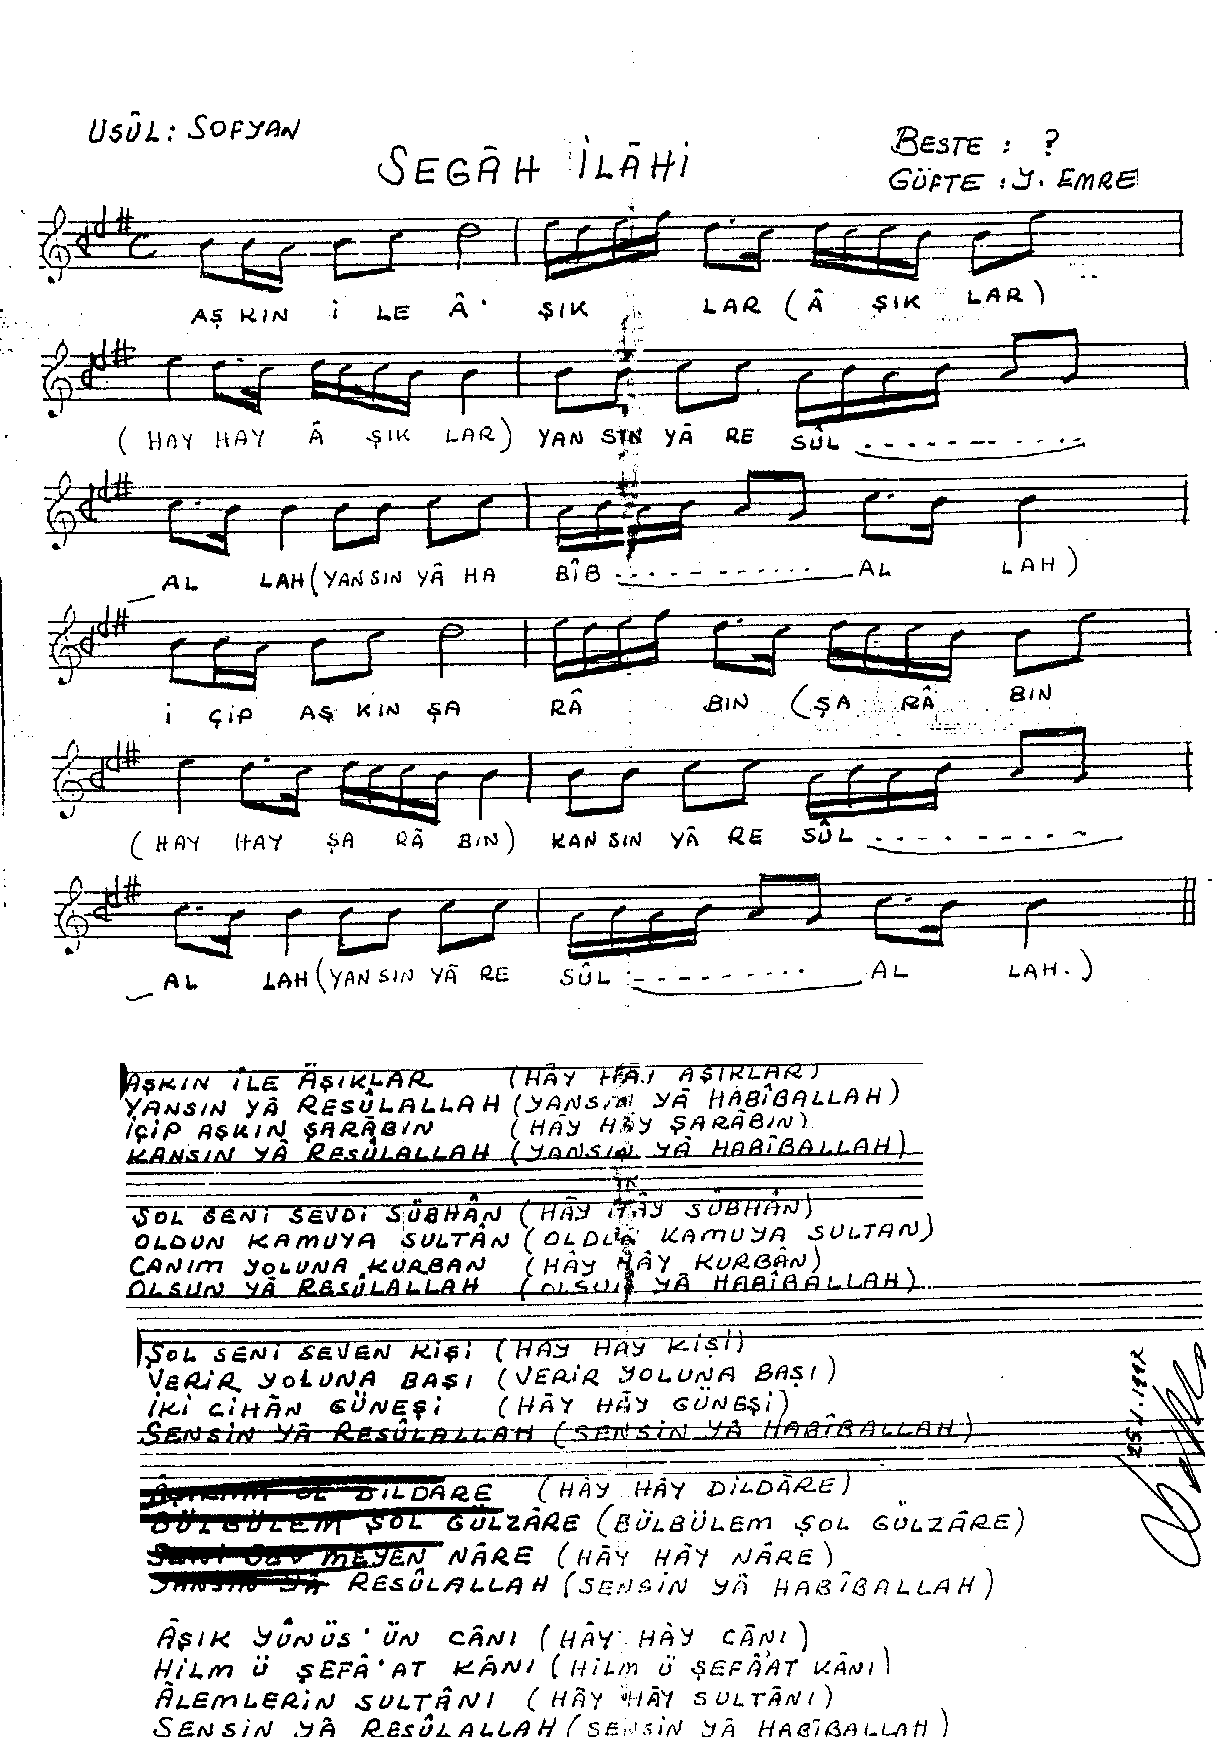 USÛL : SOFYAN
SEGÂH İLÂHİ
BESTE : ?
GÜFTE : Y. EMRE
AŞ KIN İ LE Â ŞIK LAR (Â ŞIK LAR)
(HAY HAY Â ŞIK LAR) YAN SIN YÂ RE SÛL
AL LAH (YAN SIN YÂ HA BÎB AL LAH)
İ ÇİP AŞ KIN ŞA RÂ BIN (ŞA RÂ BIN
(HAY HAY ŞA RÂ BIN) KAN SIN YÂ RE SÛL
AL LAH (YAN SIN YÂ RE SÛL AL LAH.)
AŞKIN İLE ÂŞIKLAR (HÂY HÂY AŞIKLAR)
YANSIN YÂ RESÛLALLAH (YANSIN YÂ HABÎBALLAH)
İÇİP AŞKIN ŞARÂBIN (HÂY HÂY ŞARÂBIN)
KANSIN YÂ RESÛLALLAH (YANSIN YÂ HABÎBALLAH)
ŞOL SENİ SEVDİ SÜBHÂN (HÂY HÂY SÜBHÂN)
OLDUN KAMUYA SULTÂN (OLDUN KAMUYA SULTAN)
CANIM YOLUNA KURBAN (HÂY HÂY KURBÂN)
OLSUN YÂ RESÛLALLAH (OLSUN YÂ HABÎBALLAH)
ŞOL SENİ SEVEN KİŞİ (HAY HAY KİŞİ)
VERİR YOLUNA BAŞI (VERİR YOLUNA BAŞI)
İKİ CİHÂN GÜNEŞİ (HÂY HÂY GÜNEŞİ)
SENSİN YÂ RESÛLALLAH (SENSİN YÂ HABÎBALLAH)
25.1.1992
DİLDÂRE (HÂY HÂY DİLDÂRE)
BÜLBÜLEM ŞOL GÜLZÂRE (BÜLBÜLEM ŞOL GÜLZÂRE)
MEYEN NÂRE (HÂY HÂY NÂRE)
YANSIN YÂ RESÛLALLAH (SENSİN YÂ HABÎBALLAH)
ÂŞIK YÛNÜS'ÜN CÂNI (HÂY HÂY CÂNI)
HİLM Ü ŞEFÂ'AT KÂNI (HİLM Ü ŞEFÂ'AT KÂNI)
ÂLEMLERİN SULTÂNI (HÂY HÂY SULTÂNI)
SENSİN YÂ RESÛLALLAH (SENSİN YÂ HABÎBALLAH)